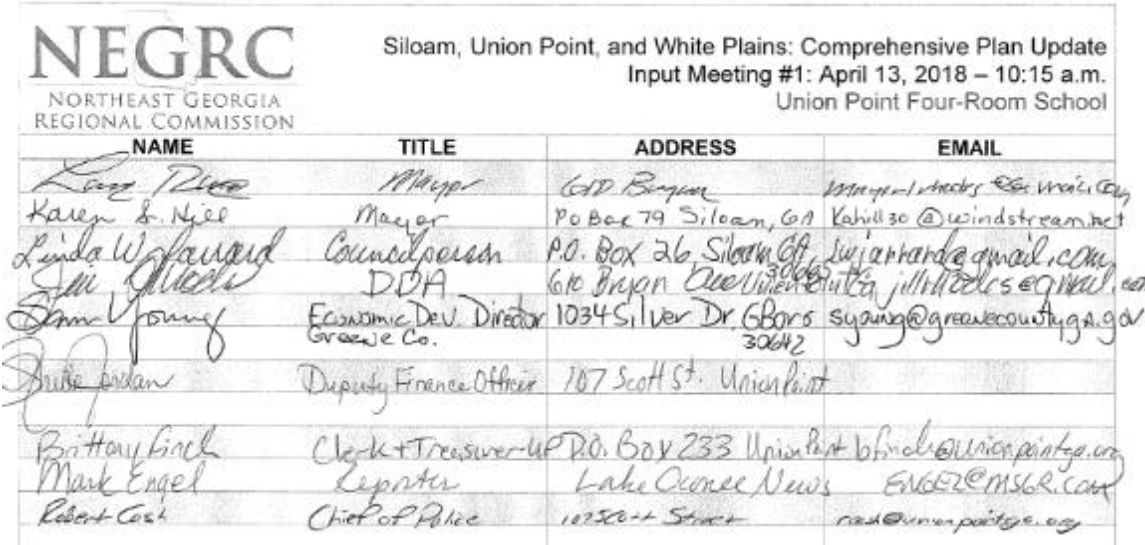 NEGRC
NORTHEAST GEORGIA
REGIONAL COMMISSION
Siloam, Union Point, and White Plains: Comprehensive Plan Update
Input Meeting #1: April 13, 2018 – 10:15 a.m.
Union Point Four-Room School
NAME TITLE ADDRESS EMAIL
Mayor 610 Bryan
Karen S. Hill Mayor PO Box 79 Siloam, GA Kahill30@windstream.net
Linda W Jarrard Councilperson P.O. Box 26, Siloam GA, lwjarrard@gmail.com
DDA 610 Bryan Ave Union Point Ga
Young Economic Dev. Director 1034 Silver Dr. GBoro syoung@greenecountyga.gov
Greene Co. 30642
Jordan Deputy Finance Officer 107 Scott St. Union Point
Brittany Finch Clerk + Treasurer-UP P.O. Box 233 Union Point bfinch@unionpointga.org
Mark Engel Reporter Lake Oconee News
Robert Cosh Chief of Police 107 Scott Street